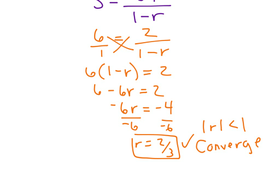 S = 1-r
6/1 = 2/(1-r)
6(1-r) = 2
6 - 6r = 2
-6r = -4
-6 -6
r = 2/3 ✓ |r| < 1
Converge